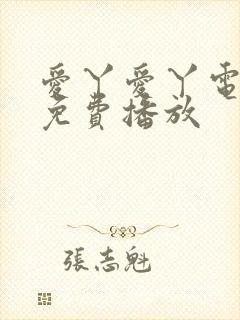 愛丫愛丫電
免費播放
張志魁